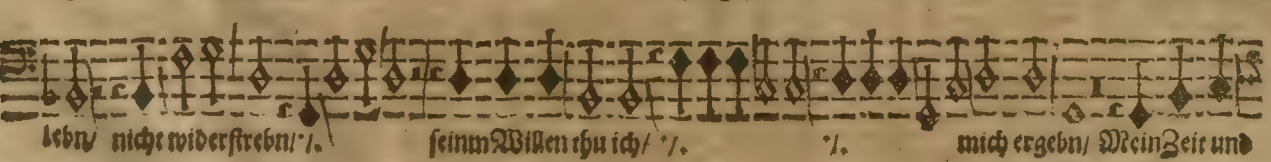 lebn/ nicht widerstrebn/ ·/. seinm Willen thu ich/ ·/. ·/. mich ergebn/ Mein Zeit und